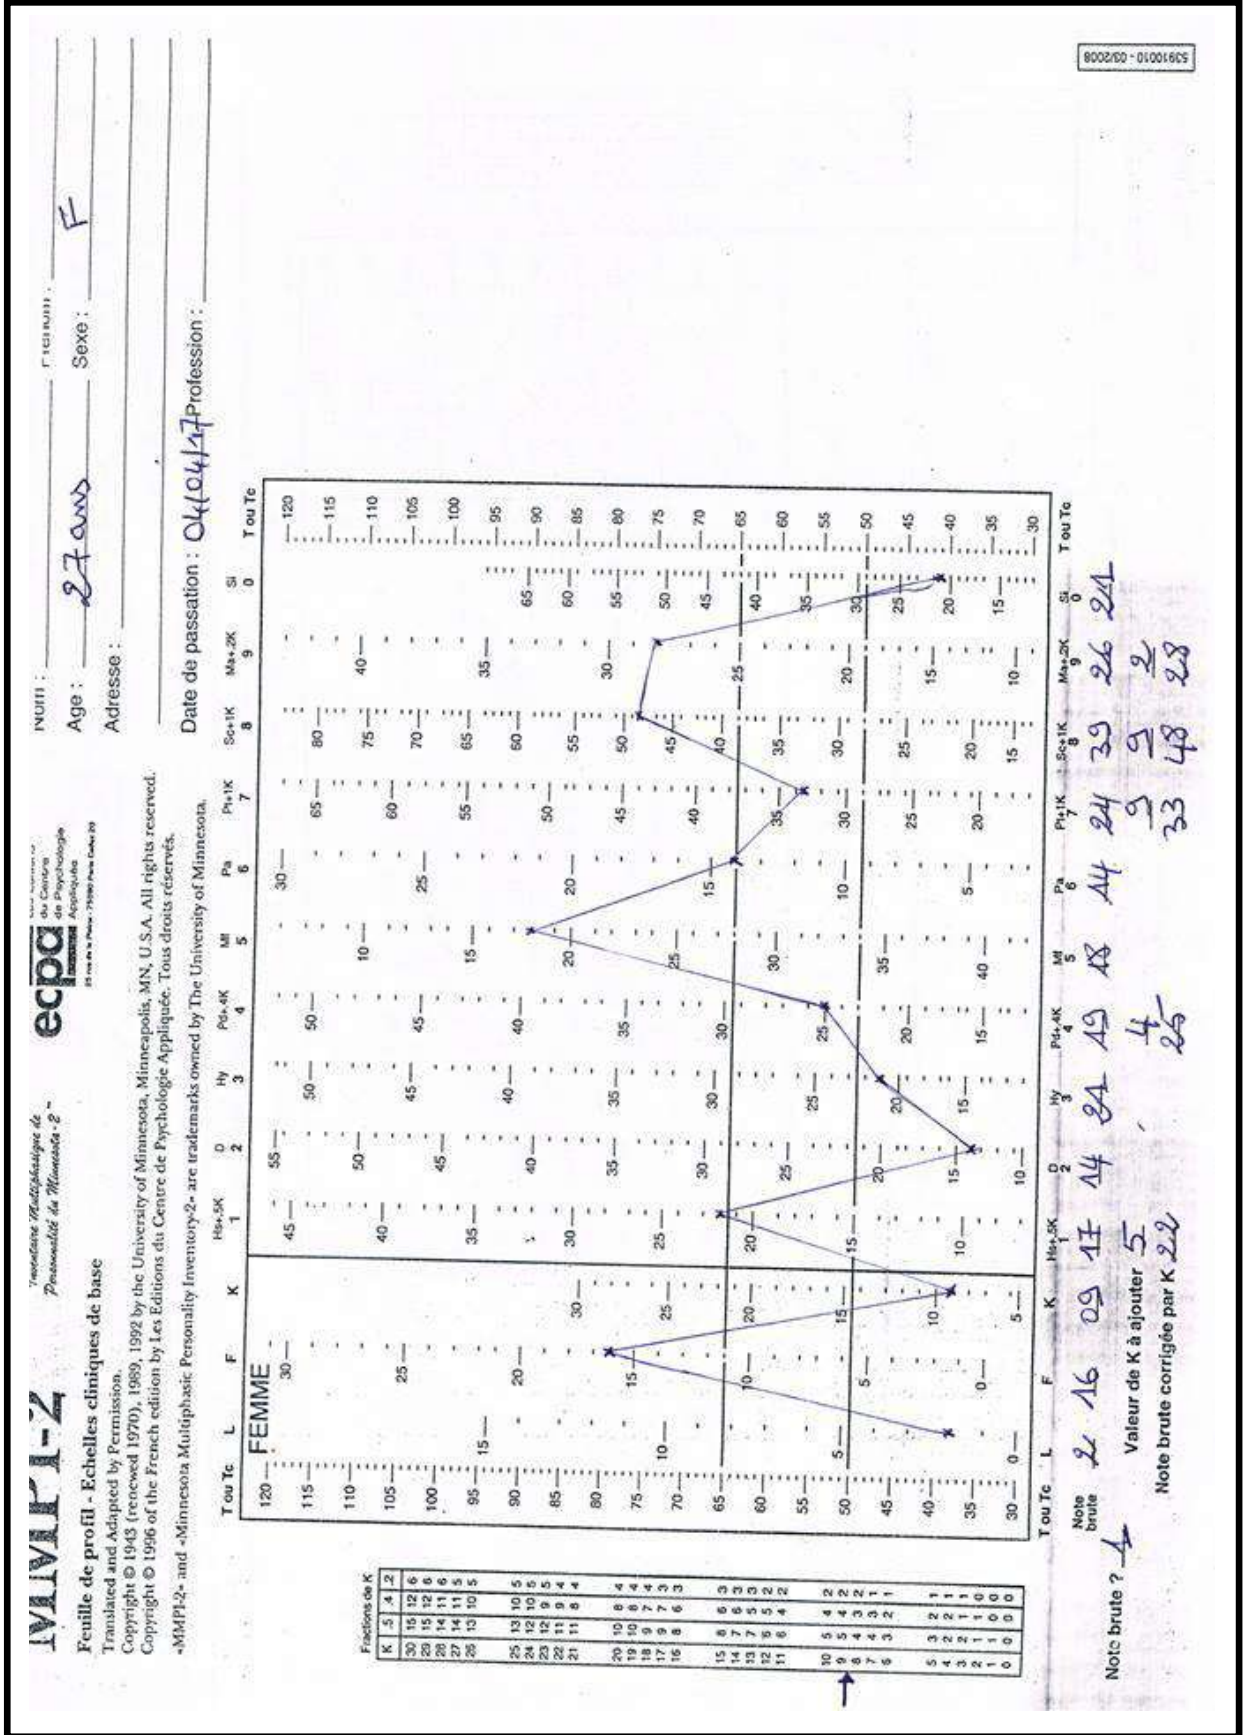 MMPI-2
Inventaire Multiphasique de
Personnalité du Minnesota - 2™
ecpa
du Centre
de Psychologie
Appliquée
Feuille de profil - Echelles cliniques de base
Translated and Adapted by Permission.
Copyright © 1943 (renewed 1970), 1989, 1992 by the University of Minnesota, Minneapolis, MN, U.S.A. All rights reserved.
Copyright © 1996 of the French edition by Les Editions du Centre de Psychologie Appliquée. Tous droits réservés.
«MMPI-2» and «Minnesota Multiphasic Personality Inventory-2» are trademarks owned by The University of Minnesota.
Age : 27 ans Sexe : F
Adresse :
Date de passation : 04/04/17 Profession :
Fractions de K
K .5 .4 .2
30 15 12 6
29 15 12 6
28 14 11 6
27 14 11 5
26 13 10 5
25 13 10 5
24 12 10 5
23 12 9 5
22 11 9 4
21 11 8 4
20 10 8 4
19 10 8 4
18 9 7 4
17 9 7 3
16 8 6 3
15 8 6 3
14 7 6 3
13 7 5 3
12 6 5 2
11 6 4 2
10 5 4 2
9 5 4 2
8 4 3 2
7 4 3 1
6 3 2 1
5 3 2 1
4 2 2 1
3 2 1 1
2 1 1 0
1 1 0 0
0 0 0 0
T ou Tc L F K Hs+.5K D Hy Pd+.4K Mf Pa Pt+1K Sc+1K Ma+.2K Si T ou Tc
1 2 3 4 5 6 7 8 9 0
FEMME
120 115 110 105 100 95 90 85 80 75 70 65 60 55 50 45 40 35 30
15 10 5 0
30 25 20 15 10 5 0
30 25 20 15 10 5
45 40 35 30 25 20 15 10
55 50 45 40 35 30 25 20 15 10
50 45 40 35 30 25 20 15
50 45 40 35 30 25 20 15
10 15 20 25 30 35 40
30 25 20 15 10 5
65 60 55 50 45 40 35 30 25 20
80 75 70 65 60 55 50 45 40 35 30 25 20 15
40 35 30 25 20 15 10
65 60 55 50 45 40 35 30 25 20 15
120 115 110 105 100 95 90 85 80 75 70 65 60 55 50 45 40 35 30
T ou Tc L F K Hs+.5K D Hy Pd+.4K Mf Pa Pt+1K Sc+1K Ma+.2K Si T ou Tc
1 2 3 4 5 6 7 8 9 0
Note brute 2 16 09 17 14 21 19 18 14 24 39 26 21
Note brute ? 1 Valeur de K à ajouter 5 4 9 9 2
Note brute corrigée par K 22 25 33 48 28
53910010 - 03/2008